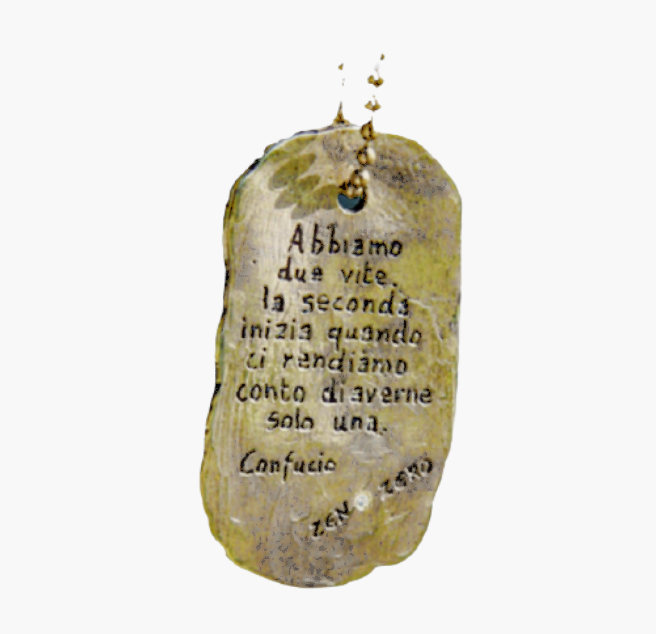 Abbiamo
due vite.
la seconda
inizia quando
ci rendiamo
conto di averne
solo una.
Confucio
ZEN ZERO